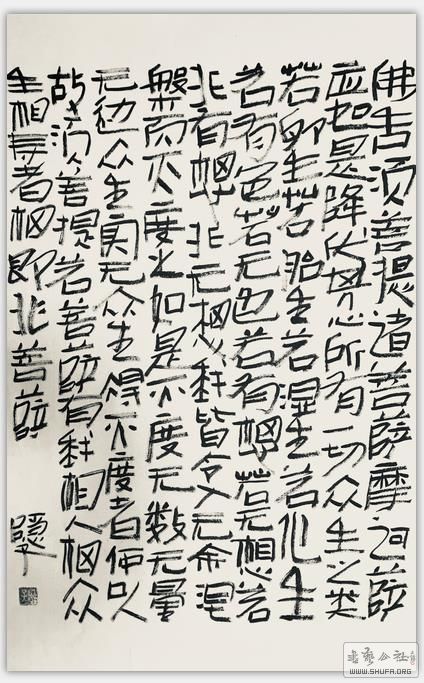 佛告须菩提诸菩萨摩诃萨
应如是降伏其心所有一切众生之类
若卵生若胎生若湿生若化生
若有色若无色若有想若无想若
非有想非无想我皆令入无余涅
槃而灭度之如是灭度无数无量
无边众生实无众生得灭度者何以
故须菩提若菩萨有我相人相众
生相寿者相即非菩萨
书艺公社
WWW.SHUFA.ORG